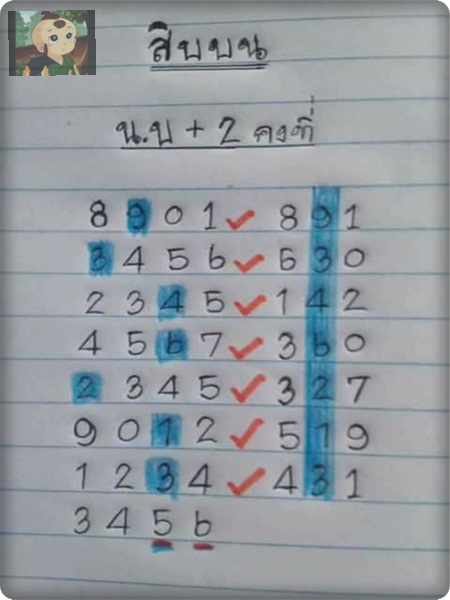 สิบบน
น.บ + 2 คงที่
8 9 0 1 ✓ 8 9 1
3 4 5 6 ✓ 6 3 0
2 3 4 5 ✓ 1 4 2
4 5 6 7 ✓ 3 6 0
2 3 4 5 ✓ 3 2 7
9 0 1 2 ✓ 5 1 9
1 2 3 4 ✓ 4 3 1
3 4 5 6